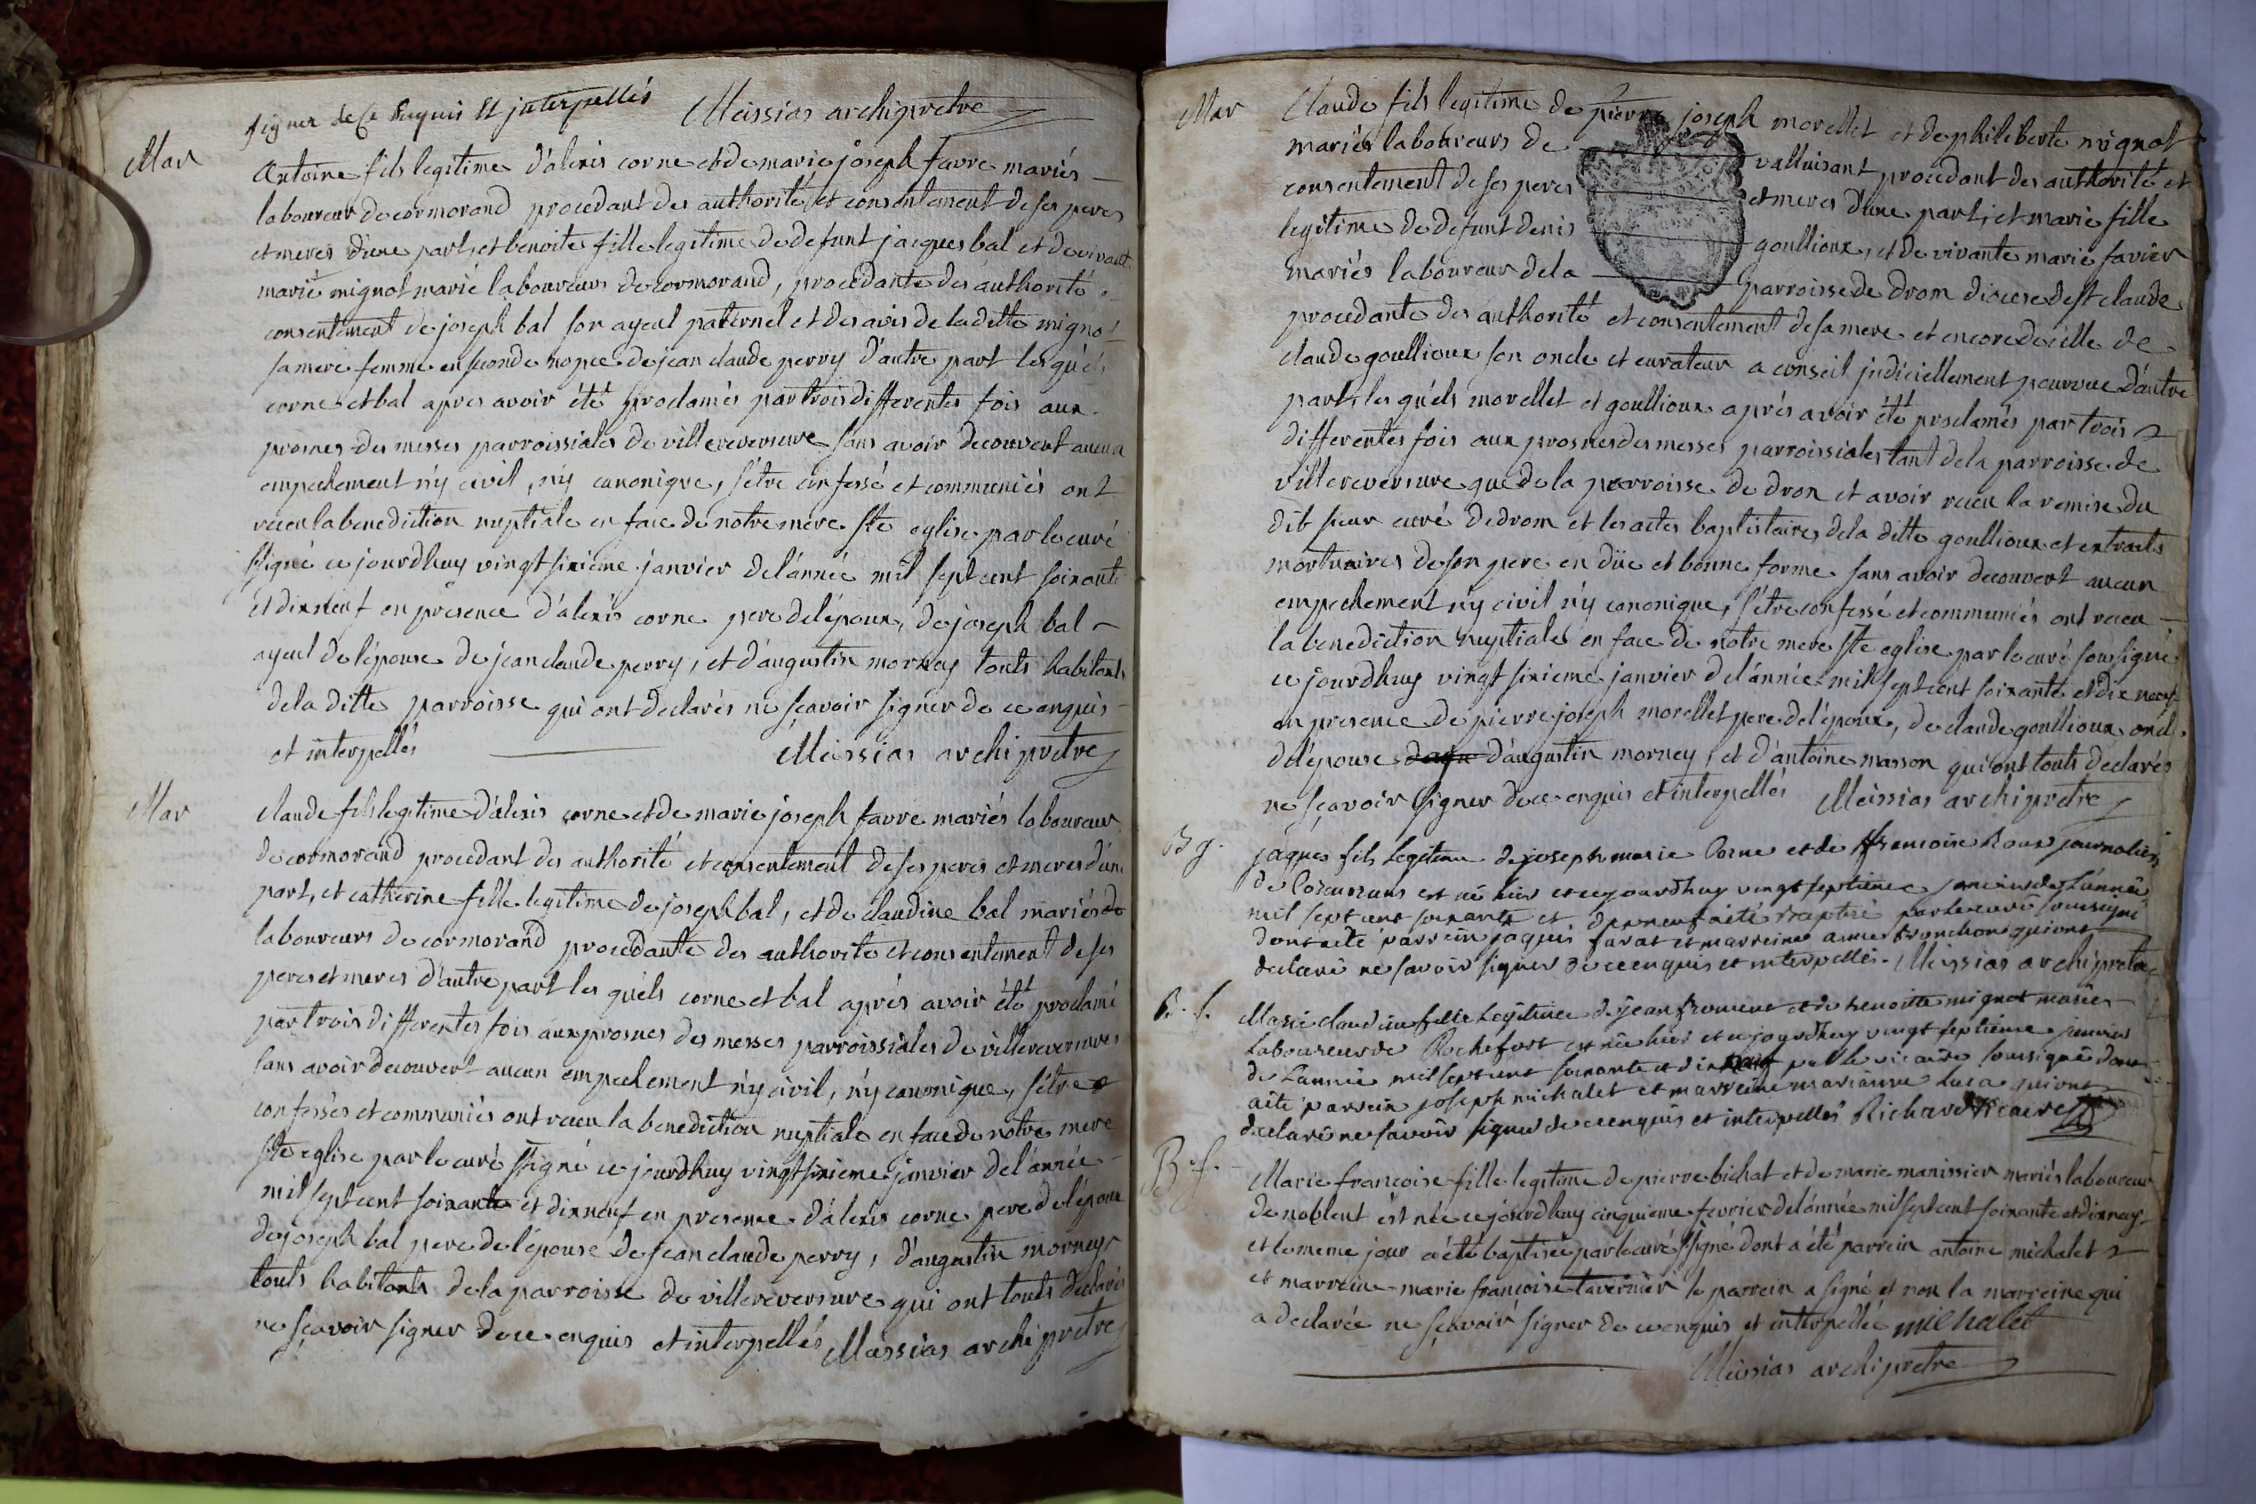 signer de ce Enquis Et interpellés Meissias archipretre
Mar
Antoine fils legitime d'alexis corne et de marie joseph favre mariés
laboureur de cormorand procedant des authorité et consentement de ses peres
et meres d'une part, et benoite fille legitime de defunt jacques bal et de vivante
marie mignot marié laboureurs de cormorand, procedante des authorité
consentement de joseph bal son ayeul paternel et des avis de la ditte mignot
sa mere femme en seconde nopce de jean claude perry d'autre part lesquels
corne et bal apres avoir été proclamés par trois differentes fois aux
prosnes des messes parroissiales de villereversure sans avoir decouvert aucun
empechement n'y civil, n'y canonique, s'être confessé et communiés ont
receu la benediction nuptiale en face de notre mere ste eglise par le curé
ssigné ce jourdhuy vingt sixième janvier de l'année mil sept cent soixante
et dixneuf en presence d'alexis corne pere de l'époux, de joseph bal
ayeul de l'épouse de jean claude perry, et d'augustin mornay touts habitants
de la ditte parroisse qui ont declarés ne sçavoir signer de ce enquis
et interpellés Meissias archipretre
Mar
claude fils legitime d'alexis corne et de marie joseph favre mariés laboureur
de cormorand procedant des authorité et consentement de ses peres et meres d'une
part, et catherine fille legitime de joseph bal, et de claudine bal mariés
laboureurs de cormorand procedante des authorité et consentement de ses
peres et meres d'autre part les quels corne et bal aprés avoir été proclamé
par trois differentes fois aux prosnes des messes parroissiales de villereversure
sans avoir decouvert aucun empechement n'y civil, n'y canonique, s'être
confessés et communiés ont receu la benediction nuptiale en face de notre mere
ste eglise par le curé ssigné ce jourdhuy vingt sixieme janvier de l'année
mil sept cent soixante et dixneuf en presence d'alexis corne pere de l'époux
de joseph bal pere de l'épouse de jean claude perry, d'augustin mornay
touts habitants de la parroisse de villereversure qui ont touts declarés
ne sçavoir signer de ce enquis et interpellés Meissias archipretre
Mar
Claude fils legitime de pierre joseph morellet et de philiberte mignot
mariés laboureurs de valluisant procedant des authorité et
consentement de ses peres et meres d'une part, et marie fille
legitime de defunt denis goullioux, et de vivante marie favier
mariés laboureur de la parroisse de drom diocese de st claude
procedante des authorité et consentement de sa mere et encore de celle de
claude goullioux son oncle et curateur a conseil judiciellement pourvue d'autre
part, les quels morellet et goullioux aprés avoir été proclamés par trois
differentes fois aux prosnes des messes parroissiales tant de la parroisse de
villereversure que de la parroisse de drom et avoir receu la remise du
dit sieur curé de drom et les actes baptistaires de la ditte goullioux et extraits
mortuaires de son pere en düe et bonne forme sans avoir decouvert aucun
empechement n'y civil n'y canonique, s'être confessé et communiés ont receu
la benediction nuptiale en face de notre mere ste eglise par le curé soussigné
ce jourdhuy vingt sixieme janvier de l'année mil sept cent soixante et dix neuf
en presence de pierre joseph morellet pere de l'époux, de claude goullioux oncle
de l'épouse d'augustin mornay, et d'antoine masson qui ont touts declarés
ne sçavoir signer de ce enquis et interpellés Meissias archipretre
B g.
jaques fils legitime de joseph marie Corne et de francoise Roux journaliers
de est né hier et ce jourdhuy vingt septieme janvier de l'année
mil sept cent soixante et dix neuf a été baptisé par le curé soussigné
dont a été parrein jaques favat et marreine anne tronchon qui ont
declaré ne savoir signer de ce enquis et interpellés. Meissias archipretre
B. f.
Marie claudine fille legitime de jean froment et de benoitte mignot mariés
Laboureurs de Rochefort est née hier et ce jourdhuy vingt septieme janvier
de L'année mil sept cent soixante et dix neuf par le vicaire soussigné dont
a été parrein joseph michalet et marreine marianne Luca qui ont
declaré ne savoir signer de ce enquis et interpellés Richard vicaire
B. f.
Marie francoise fille legitime de pierre bichat et de marie manissier mariés laboureur
de noblent est née ce jourdhuy cinquieme fevrier de l'année mil sept cent soixante et dixneuf
et le meme jour a été baptisée par le curé ssigné dont a été parrein antoine michalet
et marreine marie françoise tavernier le parrein a signé et non la marreine qui
a declarée ne sçavoir signer de ce enquis et interpellée michalet
Meissias archipretre